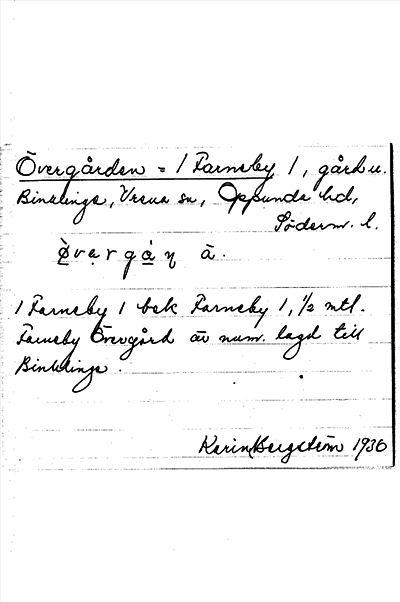 Övergården = / Farneby /, gård u.
Binklinge, Vrena sn, Oppunda hd,
Söderm. l.
ø̀vạrgá̱ṇ ā.
/ Farneby / bek Farneby 1, 1/2 mtl.
Farneby Övergård är num. lagd till
Binklinge.
Karin Bergström 1930